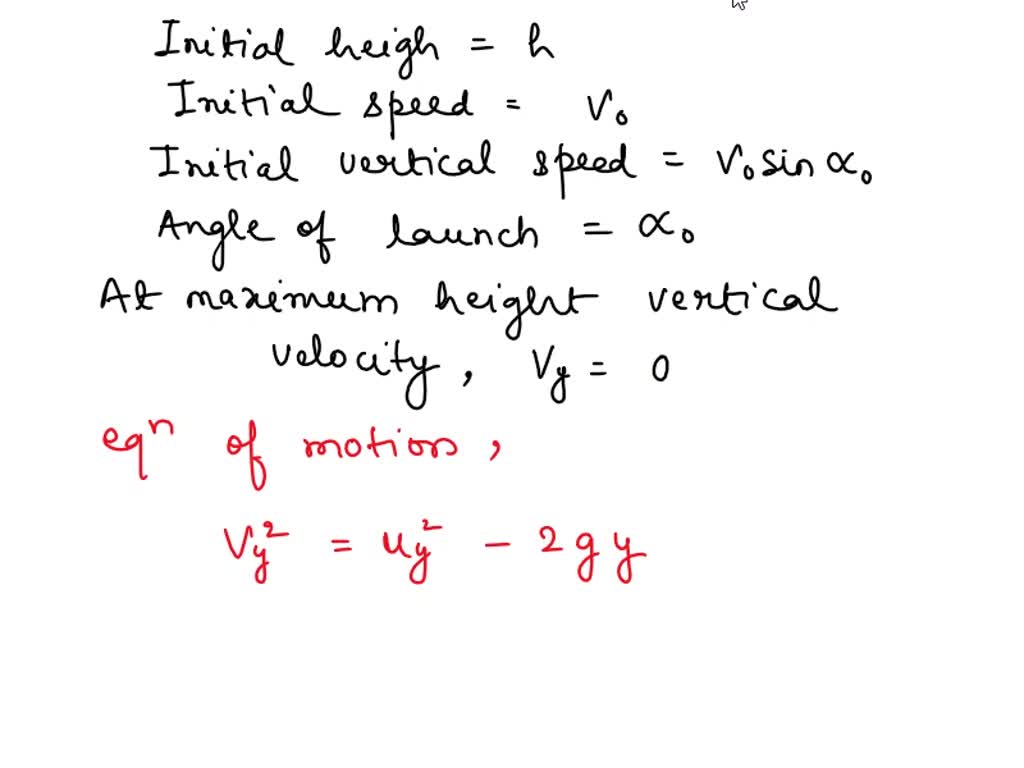 Initial heigh = h
Initial speed = v₀
Initial vertical speed = v₀ sin α₀
Angle of launch = α₀
At maximum height vertical
velocity, Vy = 0
eqⁿ of motion,
Vy² = uy² - 2gy